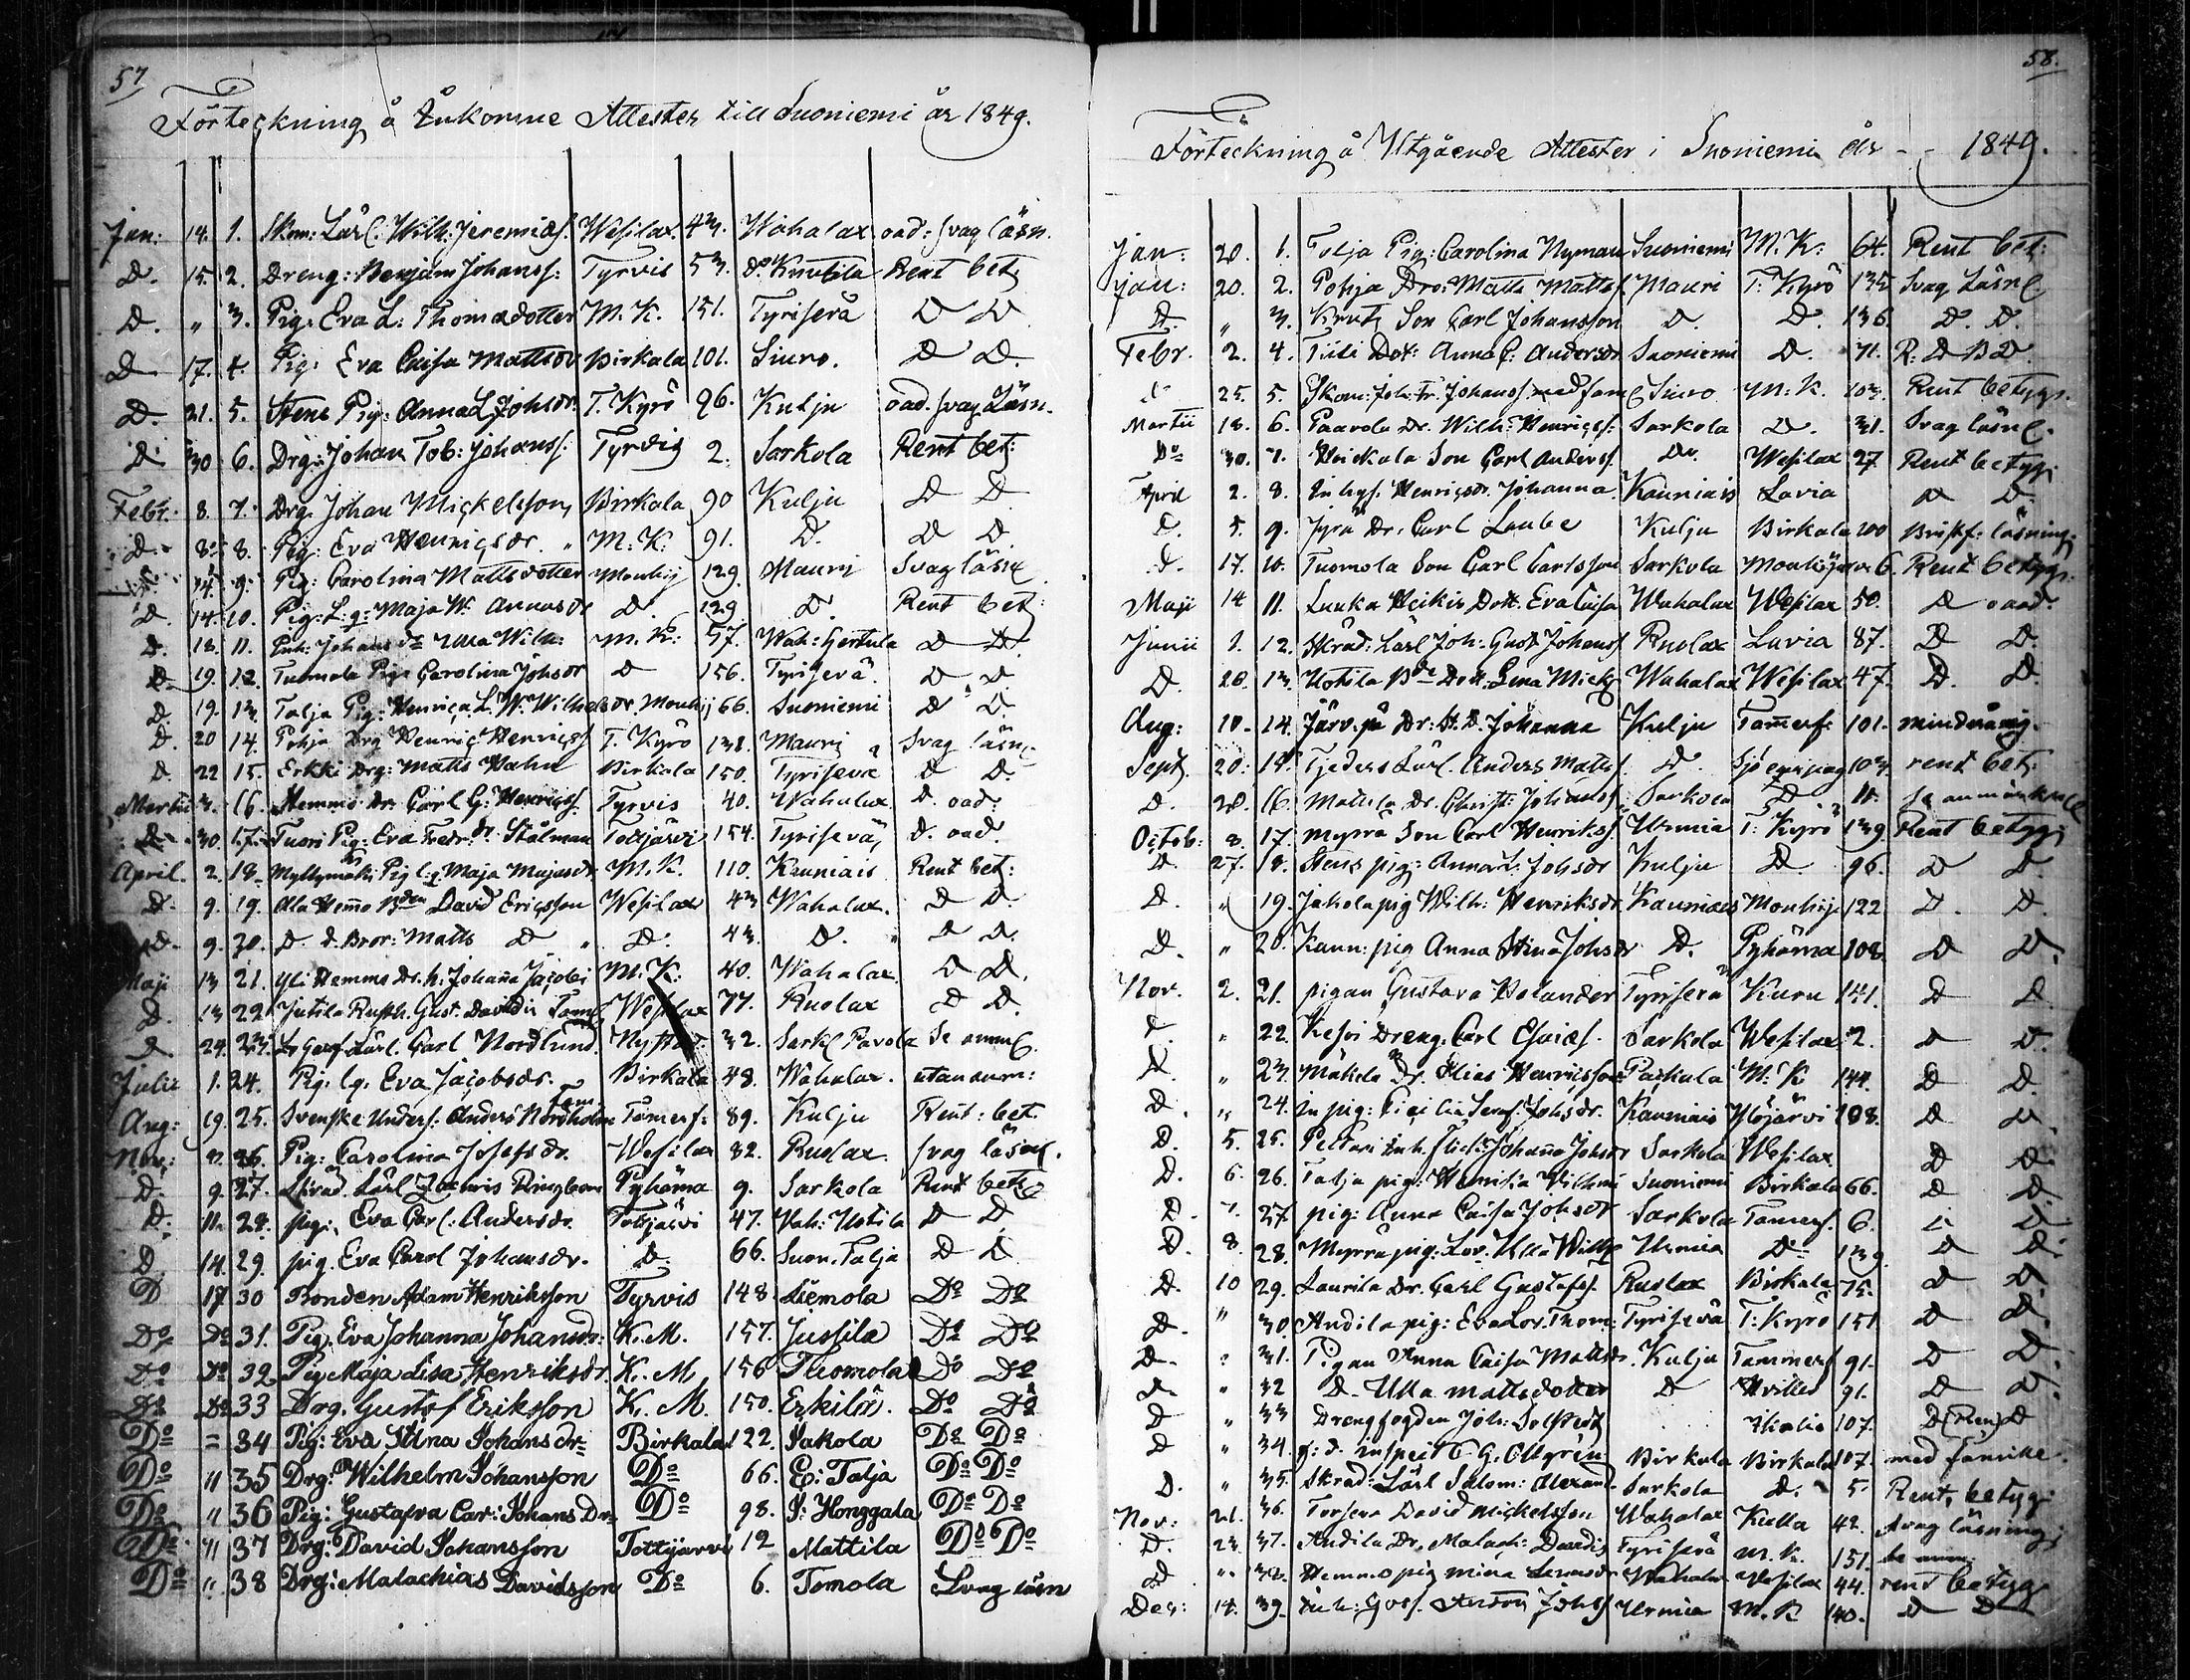 57
Förteckning å Inkomne Attester till Suoniemi år 1849.
Jan: 14. 1. Skom: Lärl. Wilh. Jeremiæs. Wesilax. 43. Wahalax. oad: svag läsn.
D. 15. 2. Dreng: Benjam Johanss: Tyrvis 53. Do Knutila Rent bet
D. " 3. Pig: Eva L: Thomædotter M. K. 151. Tyrisevä D D
D 17. 4. Pig: Eva Caisa Mattsdr Birkala 101. Siuro. D D.
D. 21. 5. Stens Pig: Anna L Johsdr. T. Kyrö 96. Kulju oad. svag Läsn.
D 30 6. Drg: Johan Tob: Johanss: Tyrvis 2. Sarkola Rent bet:
Febr. 8. 7. Drg. Johan Mickelsson, Birkala 90 Kulju D D
D. 8. 8. Pig: Eva Henricsdr. " M. K. 91. D. D D
14. 9. Pig: Carolina Mattsdotter Mouhij 129. Mauri Svag läsn
D. 14. 10. Pig: L. g: Maja W. Annasdr D. 129 D. Rent bet:
D. 18. 11. Inh: Johansdr Ulla Wilh: M. K: 57. Wah: Hertula D D
D. 19. 12. Tuomola Pig: Carolina Johsdr D 156. Tyrisevä. D D
D. 19. 13. Talja Pig: Henrica L. W. Wilhelmsdr. Mouhij 66. Suoniemi D D.
D. 20 14. Pohja Drg Henric Henricss T. Kyrö 138. Mauri Svag läsn
D. 22 15. Erkki Drg: Matts Hahn Birkala 150. Tyrisevä D D.
Martii 3. 16. Hemmo Dr. Carl G: Henricss. Tyrvis 40. Wahalax D. oad:
D. 30. 17. Tuori Pig: Eva Fredr: dr. Stålman Tottjärvi 154. Tyrisevä, D. oad.
April. 2. 18. Myllymäki Pig l. g. Maja Majasdr M. K. 110. Kauniais Rent bet:
D. 9. 19. Ala Hemmo Bden David Ericsson Wesilax 43 Wahalax. D D.
D. 9. 20. D. d. Bror: Matts D " D. 43. D. D D.
Maji 13 21. Yli Hemmo Dr. h. Johana Jacobi M. K: 40. Wahalax. D D.
D. 13 22. Jutila Rusth. Gust. Davidss Fam Wesilax 77. Ruolax D D.
D. 24. 23. Lärl. Carl Nordlund. Nystad 32. Sarkl Pavola Se anm
Julii 1. 24. Pig. lg. Eva Jacobsdr. Birkala 48. Wahalax. utan anm:
Aug: 19. 25. Svenske Unders: Anders Nordholm fam Tamerf: 89. Kulju Rent: bet.
Nov: 26. Pig: Carolina Josefsdr. Wesilax 82. Ruolax. svag läsn.
D. 9. 27. Skräd. Lärl Zachris Ringbom Pyhäma 9. Sarkola Rent bet
D. 11. 28. pig: Eva Carl: Andersdr. Totkjärvi 47. Wah: Uotila D D
D. 14. 29. pig. Eva Carol Johansdr. D. 66. Suon. Talja D D
D 17 30 Bonden Adam Henriksson Tyrvis 148. Liemola Do Do
Do Do 31. Pig. Eva Johanna Johansdr. K. M. 157. Jussila Do Do
Do Do 32 Pig Maja Lisa Henriksdr. K. M 156 Thomola Do Do
Do Do 33 Drg. Gustaf Eriksson K. M. 150. Erkilä. Do Do
Do = 34 Pig: Eva Stina Johansdr= Birkala 122. Jakola Do Do
Do " 35 Drg: Wilhelm Johansson Do 66. E: Talja Do Do
Do " 36 Pig: Gustafva Car: Johans Dr= Do 98. J: Honggala Do Do
Do " 37 Drg: David Johansson Tottijärvi 12 Mattila Do Do
Do " 38 Drg: Malachias Davidsson Do 6. Tomola Svag läsn
58.
Förteckning å Utgående Attester i Suoniemi år - - 1849.
Jan: 20. 1. Talja Pig: Carolina Nyman Suoniemi M. K: 64. Rent bet:
Jan: 20. 2. Pohja Dr: Matts Mattss Mauri T: Kyrö 135 Svag Läsn
D. " 3. Son Carl Johansson D. D. 136. D. D.
Febr. 2. 4. Dot: Anna C. Andersdr Suoniemi D. 71. R. D B D
25. 5. Skom: Joh: Fr. Johanss med fam Siuro M: K. 103. Rent betyg.
Martii 18. 6. Paavola Dr. Wilh: Henricss: Sarkola D. 31. Svag läsn.
Do 30. 7. Heickala Son Carl Anderss. Do. Wesilax 27 Rent betyg
April 2. 8. Inhys. Henricsdr. Johanna. Kauniais Lavia D D.
D. 5. 9. Jyrä Dr. Carl Laube Kulju Birkala 100 Bristf: läsning
D. 17. 10. Tuomola Son Carl Carlsson Sarkola Mouhijärvi 6. Rent betyg.
Maji 14 11. Luuka Heikis Dott. Eva Caisa Wahalax Wesilax 50. D oad.
Junii 1. 12. Skräd: Lärl Joh: Gust Johanss Ruolax Lavia 87. D D.
D. 28. 13. Uotila Bde Dott. Lena Mick Wahalax Wesilax 47. D. D.
Aug: 10. 14. Järv. på Dr: St. D. Johanna Kulju Tamerf: 101. minderårig.
Sept 20: 15. Tjeders Lärl. Anders Mattss. D. Sjö equipag 103. rent bet.
D. 28. 16. Mattila Dr. Christ: Johanss Sarkola D 11. se anmärkn
Octob: 8. 17. Myrrä Son Carl Henrikss. Urmia T: Kyrö 139. Rent betyg
D. 27. 18. Stens pig: Anna L: Johsdr Kulju D 96. D D.
D. " 19. Jakola pig Wilh: Henriksdr Kauniais Mouhijr 122 D. D.
D. " 20. Kaun: pig Anna Stina Johsdr D. Pyhäma 108. D D.
Nov. 2. 21. pigan Gustava Helander Tyrisevä Kuru 141. D D
D. " 22. Kesoi Dreng. Carl Esaiæs. Sarkola Wesilax 2. D D.
D. " 23. Mäkelä Dr. Elias Henricsson Packala M: K 144. D D.
D. " 24. In pig: Cicilia Seraf: Johsdr. Kauniais Ylöjärvi 108. D D.
D. 5. 25. Peltari Inh. flick: Johana Johsdr Sarkola Wesilax D D.
D. 6. 26. Talja pig: Henrika Wilhmi Suoniemi Birkala 66. D D
D. 7. 27. pig: Anna Caisa Johsdr Sarkola Tamerf. 6. D D
D. 8. 28. Myrrä pig: Lov. Ulla Wilh Urmia D 139. D D.
D. 10 29. Laurila Dr. Carl Gustafss. Ruolax Birkala 75. D D.
D. " 30. Andila pig: Eva Lov. Thom: Tyrisevä T: Kyrö 151 D D.
D. " 31. Pigan Anna Caisa Mattsdr. Kulju Tammerf 91. D D.
D. " 32 D. Ulla Mattsdotter D Hvittis 91. D D.
D " 33 Drengfogden Joh: Ikalis 107. D (Ren) D
D " 34. f: d. inspect C. G. Allgrén Birkala Birkala 107. med fänrike.
D. " 35. Skräd: Lärl Salom: Alexand Sarkola D. 5. Rent betyg
Nov: 21. 36. Torseva David Mickelsson Wahalax Kulla 42. Svag läsning
D. 23. 37. Andila Dr. Malach: Davids Tyrisevä M. K. 151. se anm.
D " 38. Hemmo pig Mina Wahalax Wesilax 44. rent betyg
Dec: 14. 39. Inh: Gos. Anton Johss Urmia M. K 140. D D